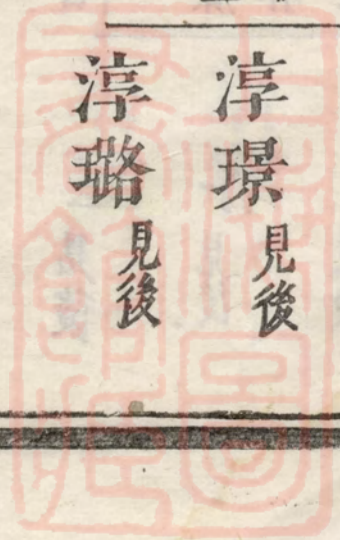 淳璟見後
淳璐見後